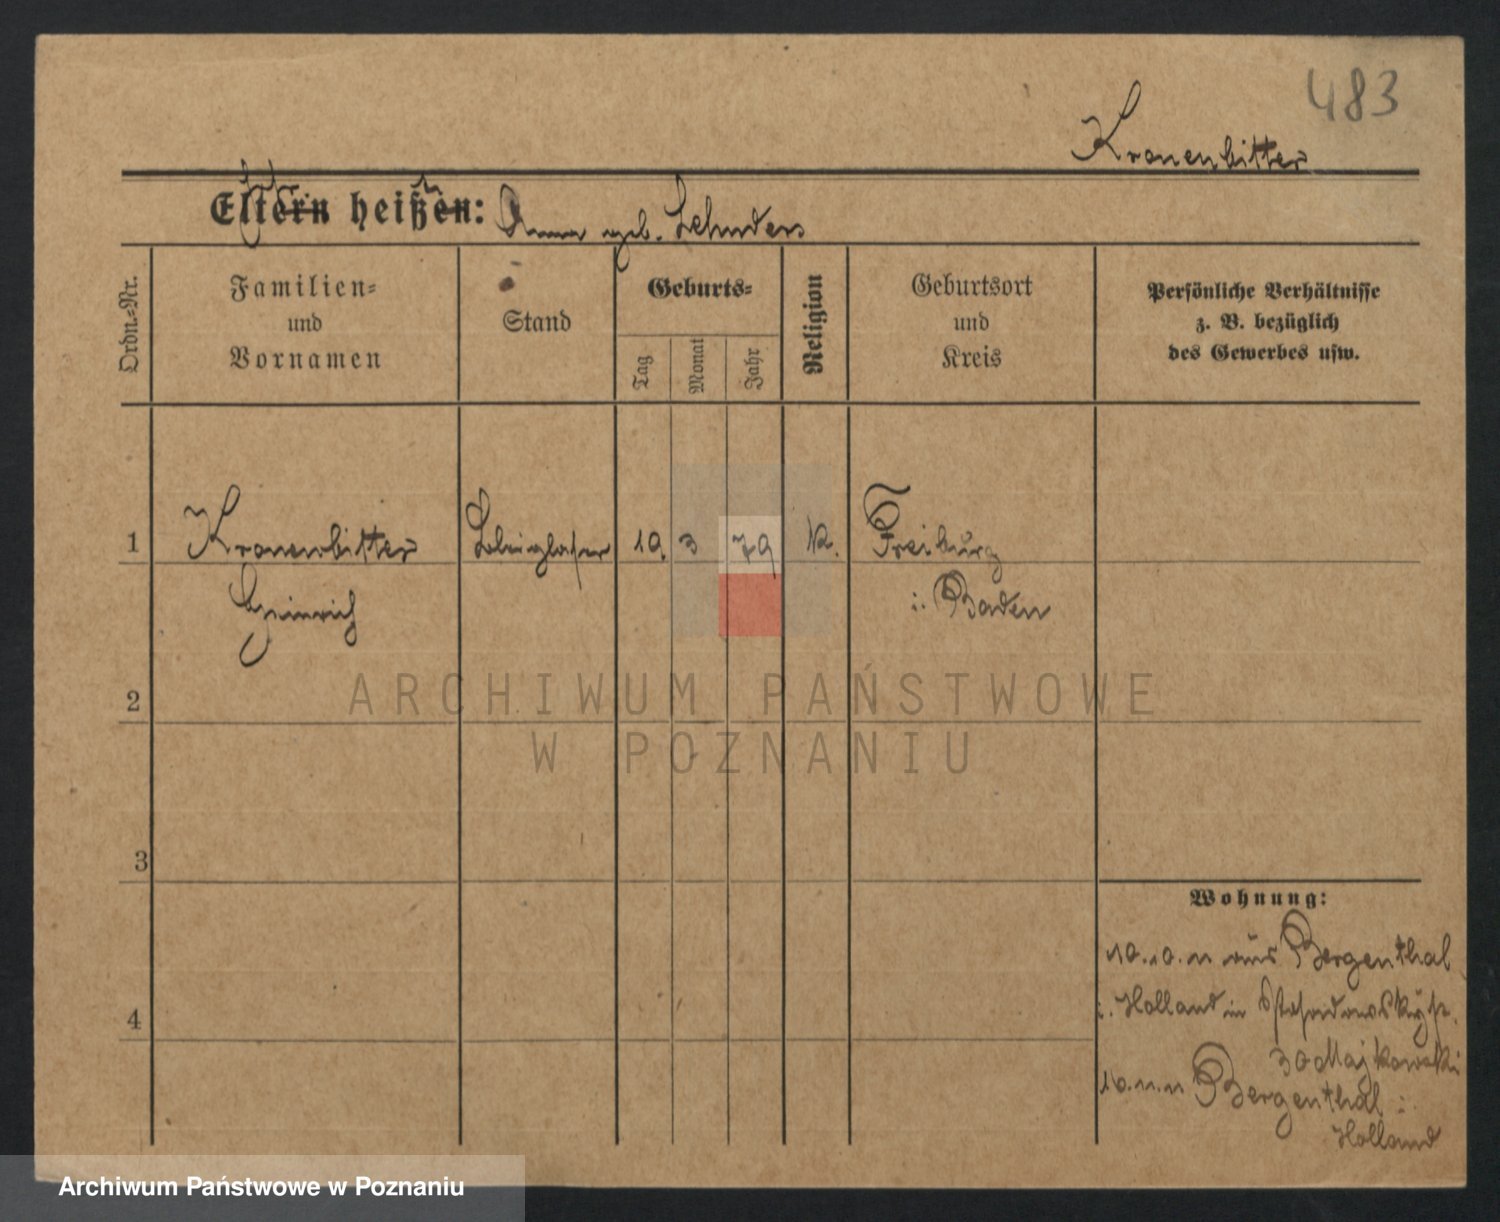 483
Kronenbitter
Eltern heißen: Anna geb.
Ordn.-Nr.
Familien-
und
Vornamen
Stand
Geburts-
Tag
Monat
Jahr
Religion
Geburtsort
und
Kreis
Persönliche Verhältnisse
z. B. bezüglich
des Gewerbes usw.
1
Kronenbitter
19. 3 79
K.
Freiburg
Heinrich
i. Baden
2
ARCHIWUM PAŃSTWOWE
W POZNANIU
3
Wohnung:
10.10.11 aus Bergenthal
i. Holland in
4
30 Majkowski
10.11.11 Bergenthal i.
Holland
Archiwum Państwowe w Poznaniu